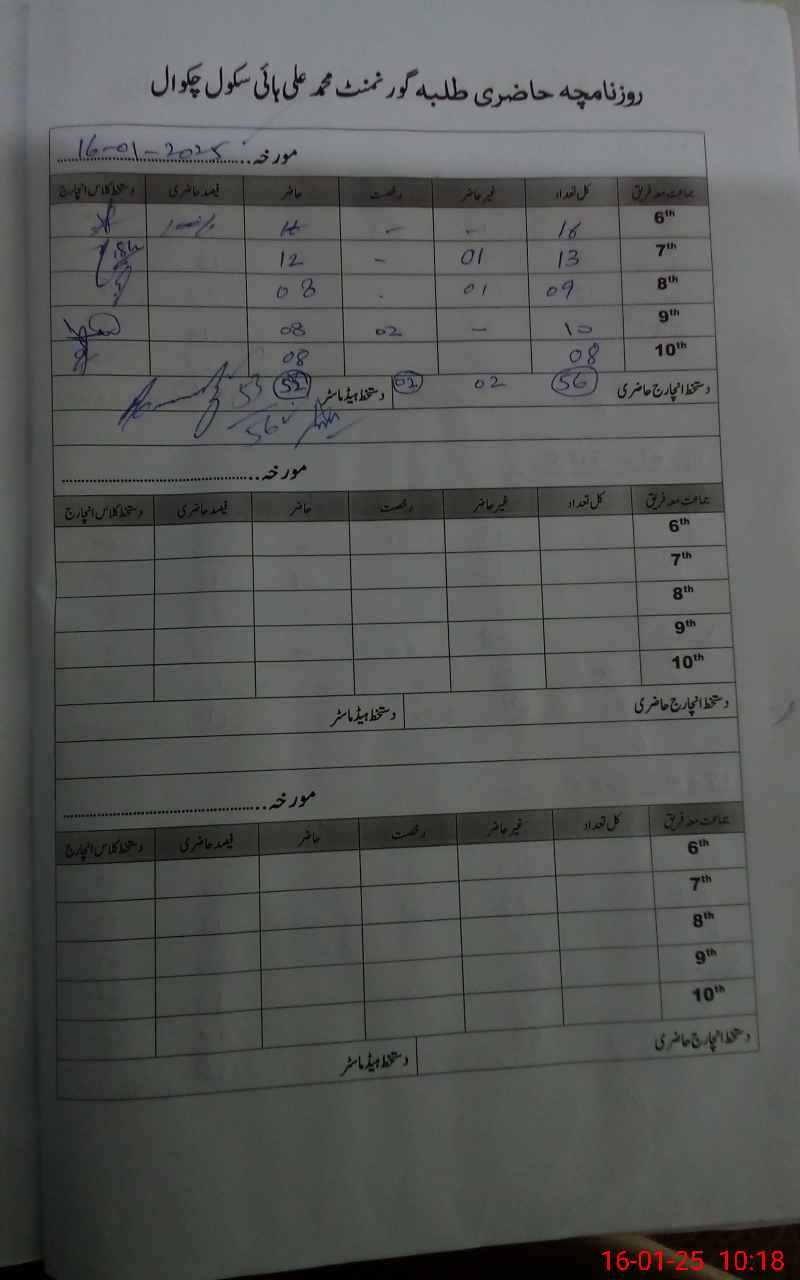 روزنامچہ حاضری طلبہ گورنمنٹ محمد علی ہائی سکول چکوال
مورخہ 16-01-2025
جماعت معہ فریق کل تعداد غیر حاضر رخصت حاضر فیصد حاضری دستخط کلاس انچارج
6th 16 - - 16 100%
7th 13 01 - 12
8th 09 01 . 08
9th 10 - 02 08
10th 08 08
دستخط انچارج حاضری 56 02 02 دستخط ہیڈ ماسٹر 52 53
56
مورخہ
جماعت معہ فریق کل تعداد غیر حاضر رخصت حاضر فیصد حاضری دستخط کلاس انچارج
6th
7th
8th
9th
10th
دستخط انچارج حاضری دستخط ہیڈ ماسٹر
مورخہ
جماعت معہ فریق کل تعداد غیر حاضر رخصت حاضر فیصد حاضری دستخط کلاس انچارج
6th
7th
8th
9th
10th
دستخط انچارج حاضری دستخط ہیڈ ماسٹر
16-01-25 10:18